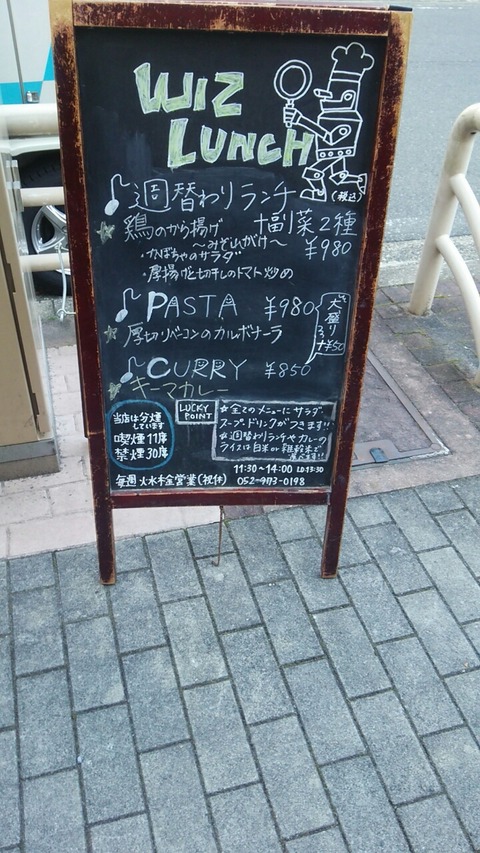 WIZ
LUNCH
(税込)
週替わりランチ
鶏のから揚げ
+副菜2種
〜みぞれがけ〜
¥980
・かぼちゃのサラダ
・厚揚げと切干しのトマト炒め
PASTA ¥980
厚切りベーコンのカルボナーラ
大盛り
+¥50
CURRY ¥850
キーマカレー
当店は分煙
しています
喫煙11席
禁煙30席
LUCKY
POINT
☆全てのメニューにサラダ
スープ、ドリンクがつきます!!
☆週替わりランチやカレーの
ライスは白米or雑穀米で
選べます!!
11:30〜14:00 LO13:30
毎週 火水木金営業(祝休) 052-973-0198